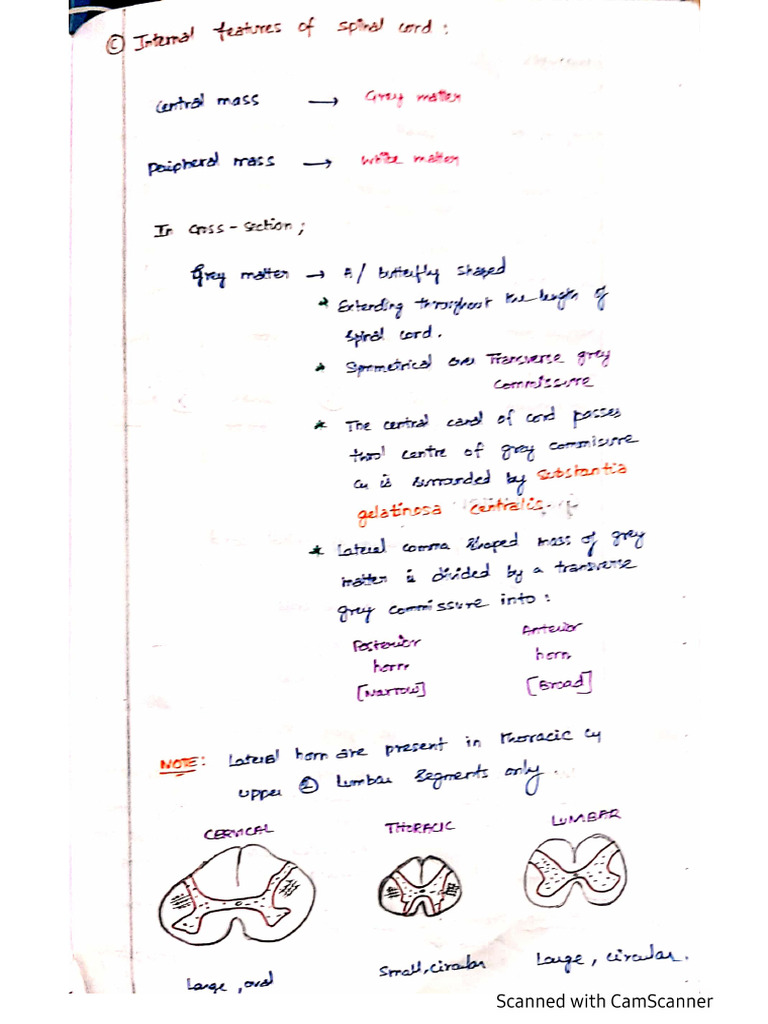 © Internal features of spinal cord :
Central mass → Grey matter
Peripheral mass → White matter
In cross-section ;
Grey matter → H/ butterfly shaped
* Extending throughout the length of
spinal cord.
* Symmetrical over Transverse grey
commissure
* The central canal of cord passes
thro' centre of grey commisure
& is surrounded by Substantia
gelatinosa centralis.
* Lateral comma shaped mass of grey
matter is divided by a transverse
grey commissure into :
Posterior horn [Narrow]
Anterior horn [Broad]
NOTE: Lateral horn are present in thoracic &
upper ② lumbar segments only.
CERVICAL THORACIC LUMBAR
Large, oval Small, circular Large, circular.
Scanned with CamScanner